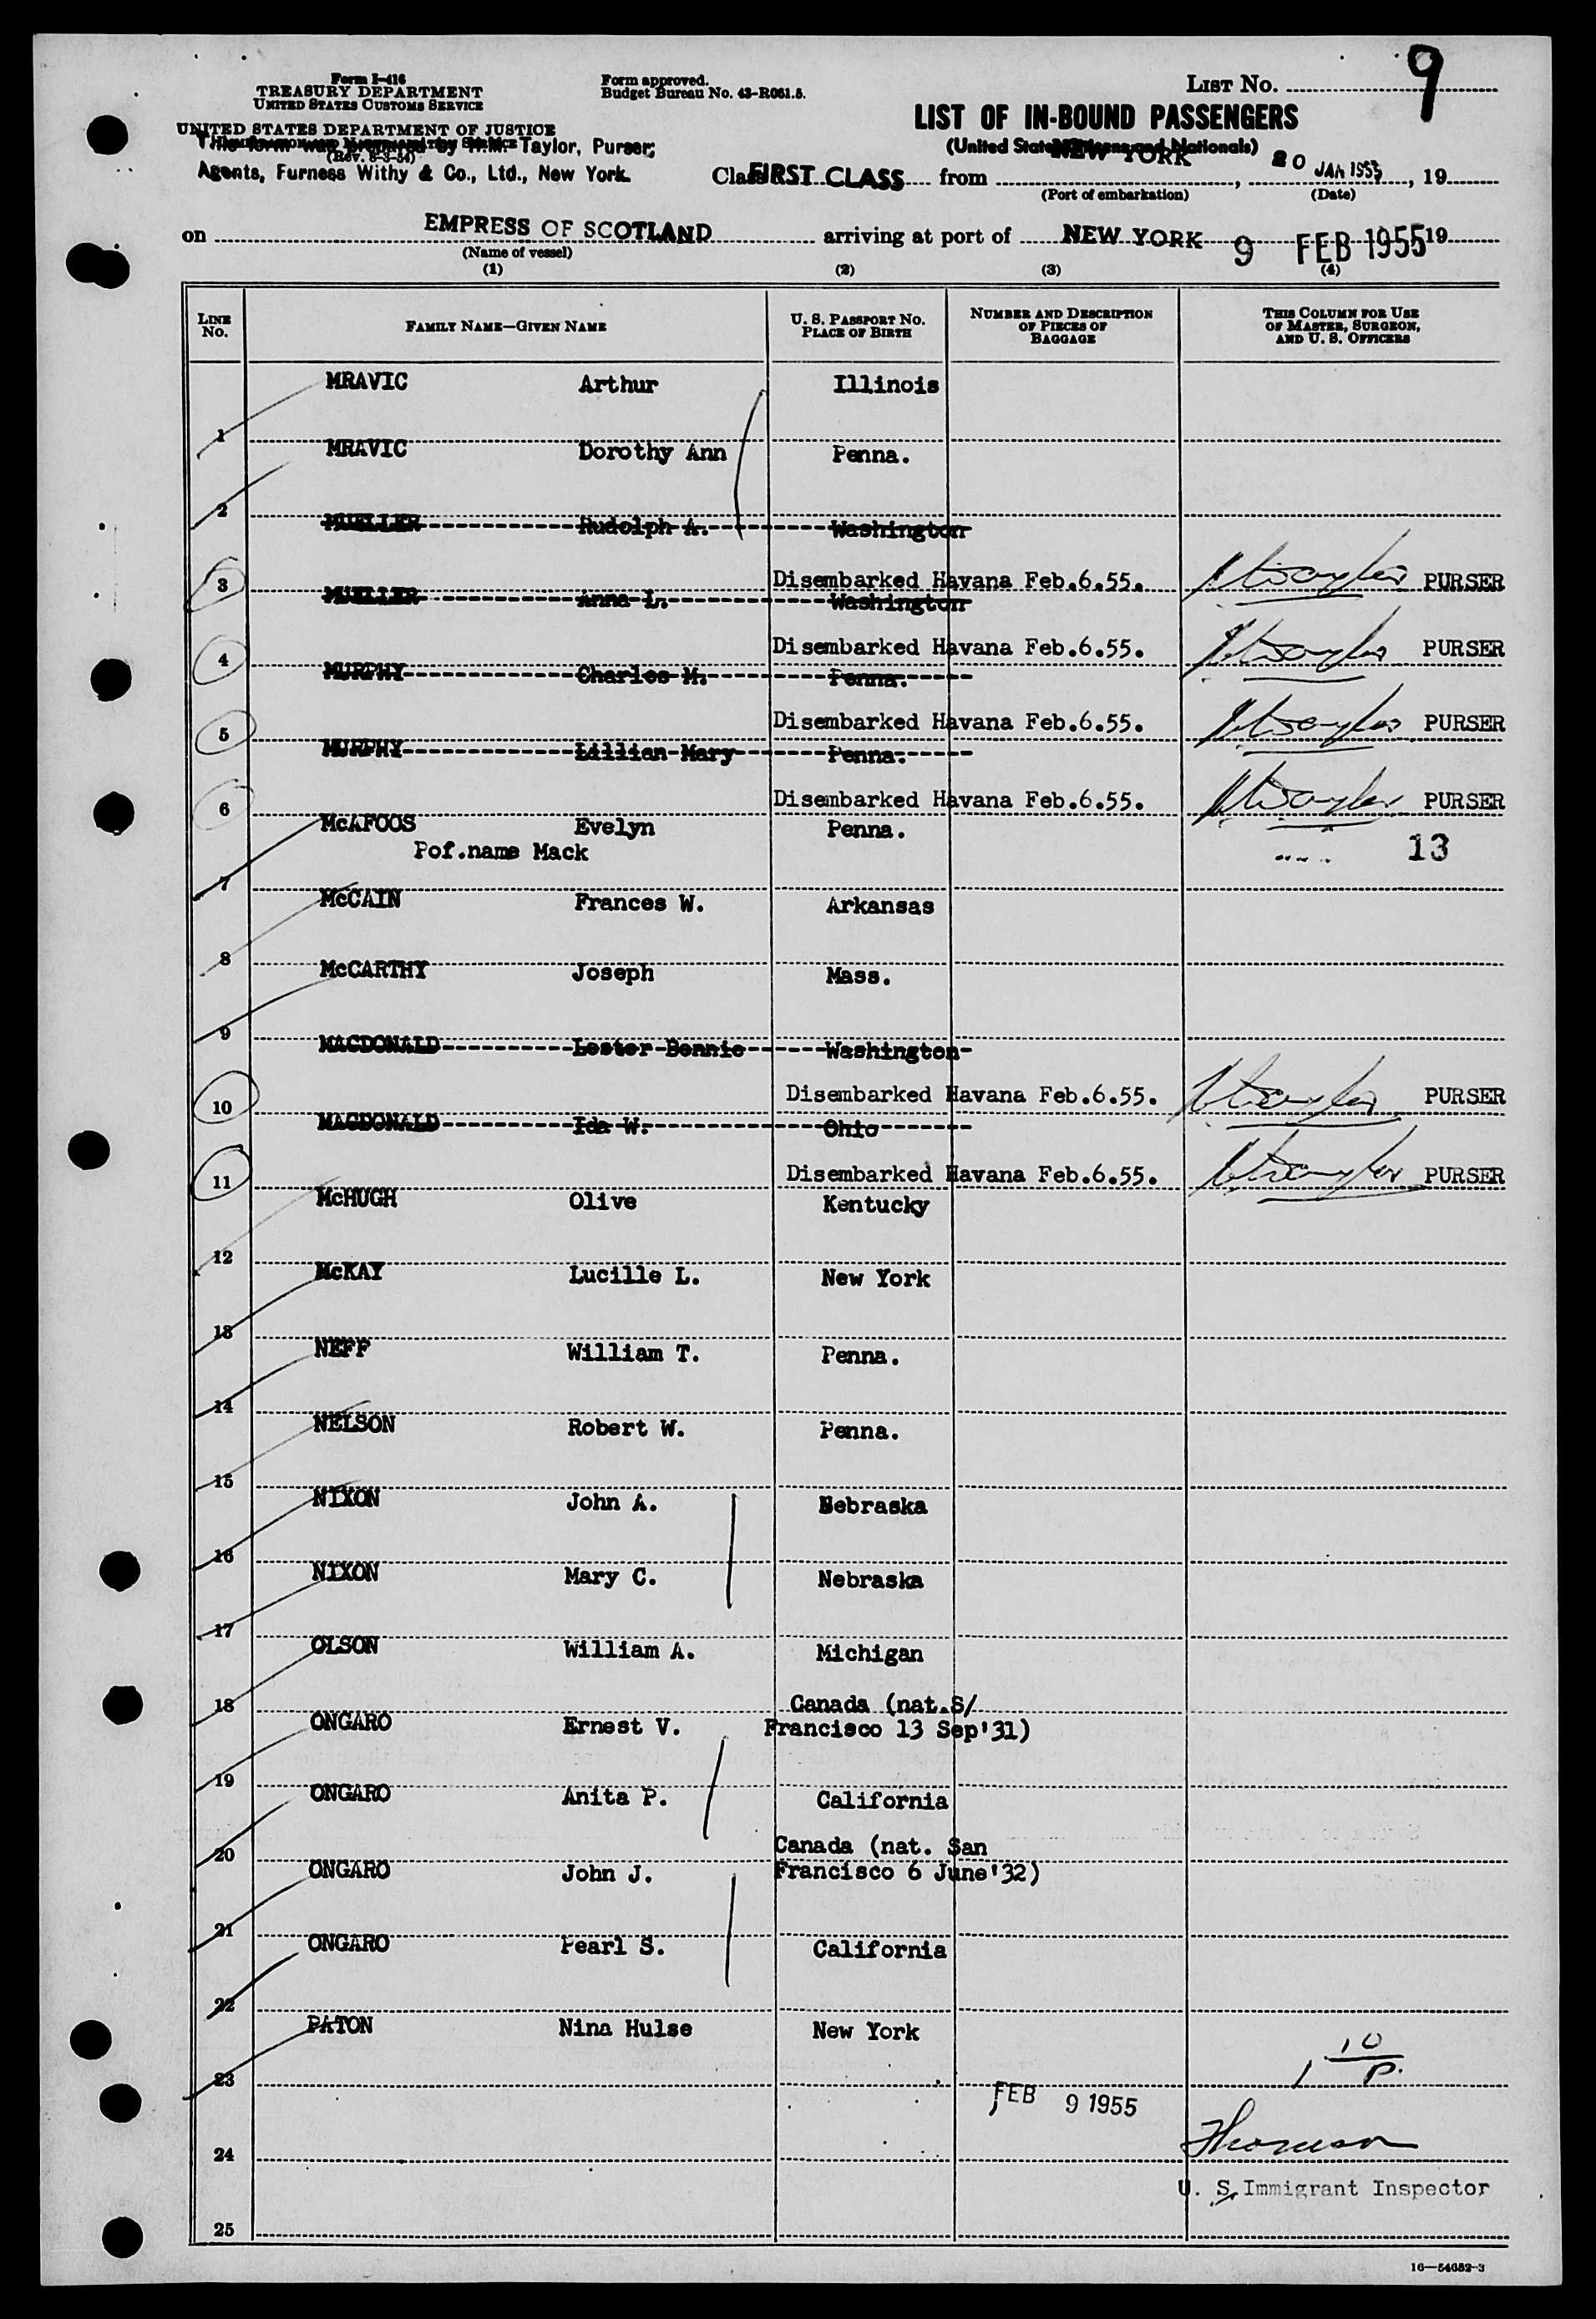 Form I-416
TREASURY DEPARTMENT
UNITED STATES CUSTOMS SERVICE
Form approved.
Budget Bureau No. 43-R061.5.
LIST No. 9
UNITED STATES DEPARTMENT OF JUSTICE
Taylor, Purser;
(Rev. 8-3-54)
Agents, Furness Withy & Co., Ltd., New York.
LIST OF IN-BOUND PASSENGERS
(United States Citizens and Nationals)
Class FIRST CLASS from NEW YORK, 20 JAN 1955, 19
(Port of embarkation) (Date)
on EMPRESS OF SCOTLAND arriving at port of NEW YORK 9 FEB 1955 19
(Name of vessel)
(1) (2) (3) (4)
LINE No. FAMILY NAME—GIVEN NAME U. S. PASSPORT No. PLACE OF BIRTH NUMBER AND DESCRIPTION OF PIECES OF BAGGAGE THIS COLUMN FOR USE OF MASTER, SURGEON, AND U. S. OFFICERS
MRAVIC Arthur Illinois
1
MRAVIC Dorothy Ann Penna.
2
MUELLER Rudolph A. Washington
3 Disembarked Havana Feb.6.55. PURSER
MUELLER Anna L. Washington
4 Disembarked Havana Feb.6.55. PURSER
MURPHY Charles M. Penna.
5 Disembarked Havana Feb.6.55. PURSER
MURPHY Lillian Mary Penna.
6 Disembarked Havana Feb.6.55. PURSER
McAFOOS Evelyn Penna.
Pof.name Mack 13
7
McCAIN Frances W. Arkansas
8
McCARTHY Joseph Mass.
9
MACDONALD Lester Bennie Washington
10 Disembarked Havana Feb.6.55. PURSER
MACDONALD Ida W. Ohio
11 Disembarked Havana Feb.6.55. PURSER
McHUGH Olive Kentucky
12
McKAY Lucille L. New York
13
NEFF William T. Penna.
14
NELSON Robert W. Penna.
15
NIXON John A. Nebraska
16
NIXON Mary C. Nebraska
17
OLSON William A. Michigan
18 Canada (nat.S/
ONGARO Ernest V. Francisco 13 Sep'31)
19
ONGARO Anita P. California
20 Canada (nat. San
ONGARO John J. Francisco 6 June'32)
21
ONGARO Pearl S. California
22
PATON Nina Hulse New York
23
FEB 9 1955
24
U. S. Immigrant Inspector
25
16—54652-3